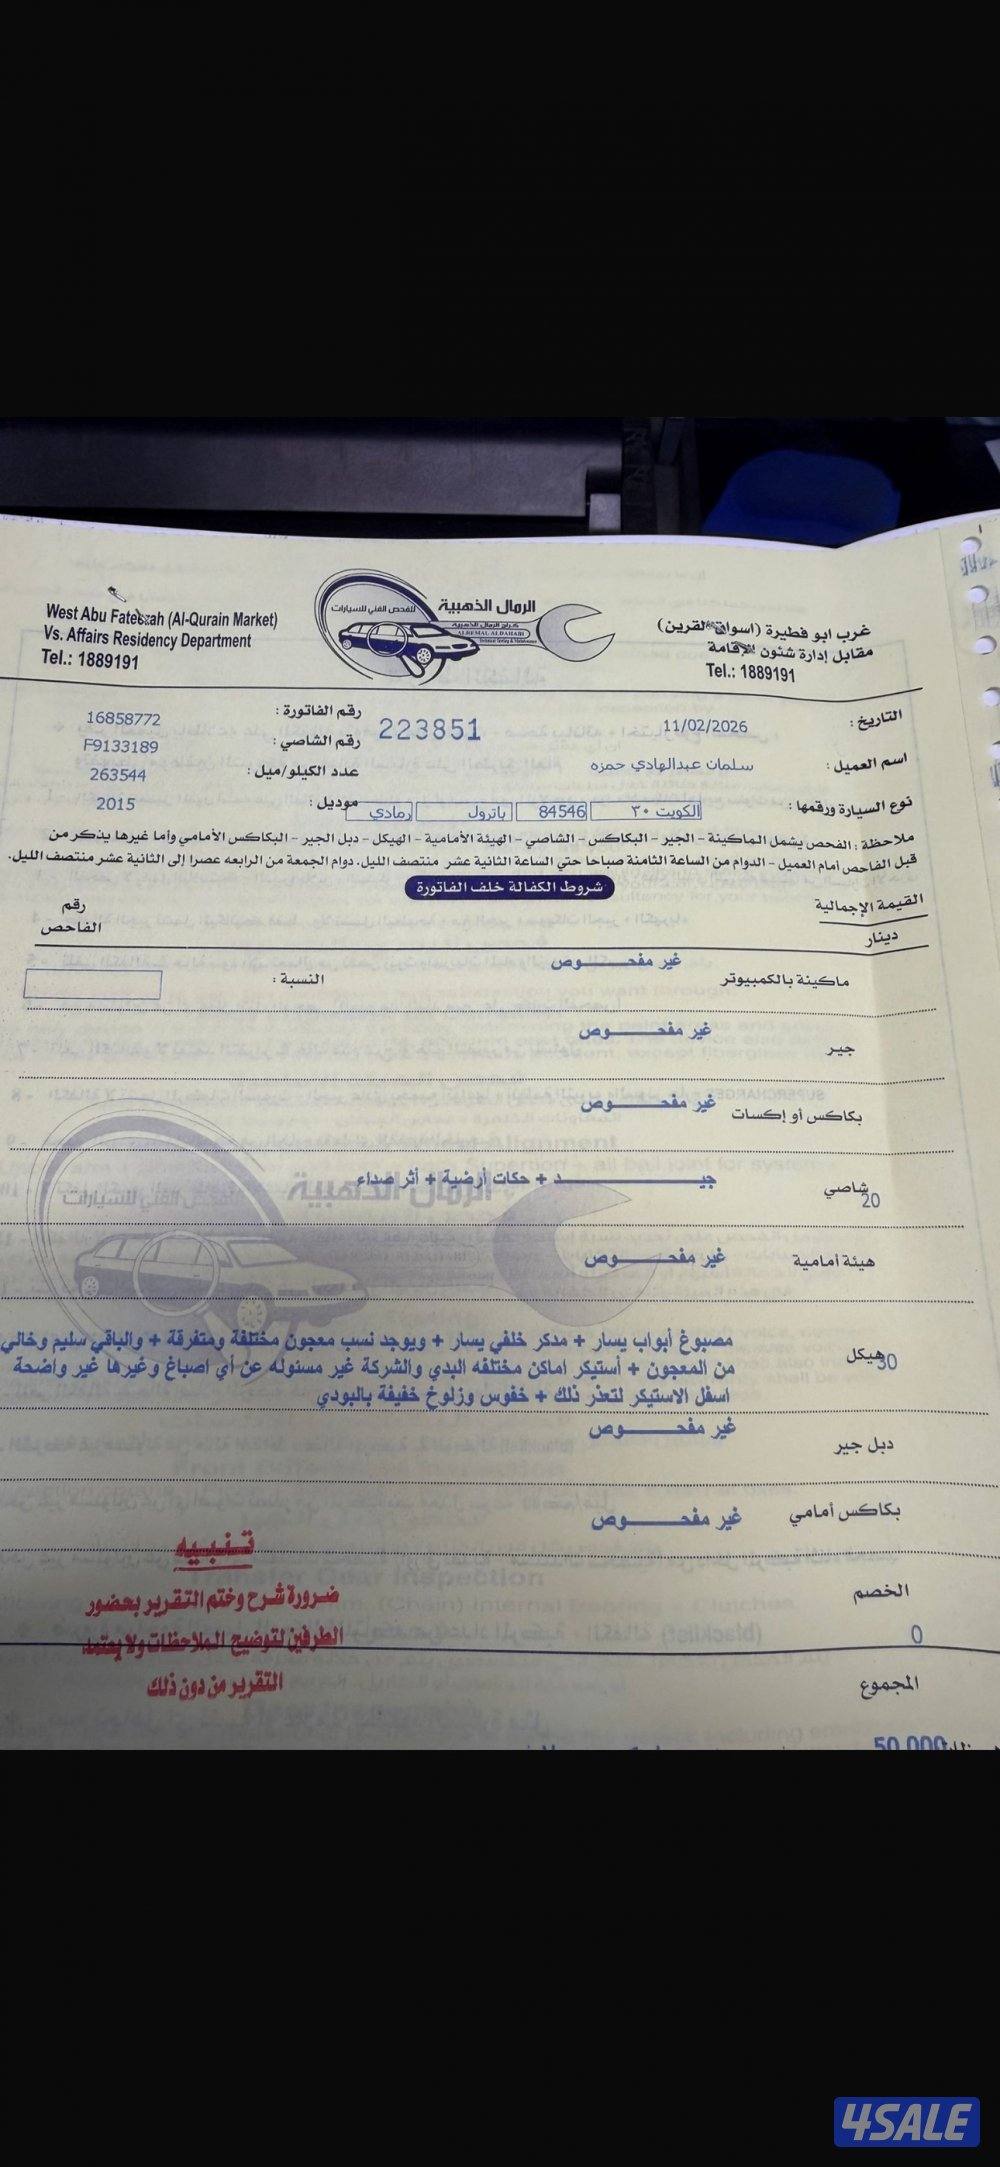 West Abu Fateerah (Al-Qurain Market)
Vs. Affairs Residency Department
Tel.: 1889191
الرمال الذهبية
للفحص الفني للسيارات
كراج الرمال الذهبية
ALREMAL ALDAHABI
Technical Testing & Maintenance
غرب ابو فطيرة (اسواق القرين)
مقابل إدارة شئون الإقامة
Tel.: 1889191
التاريخ : 11/02/2026
223851
رقم الفاتورة : 16858772
اسم العميل : سلمان عبدالهادي حمزه
رقم الشاصي : F9133189
عدد الكيلو/ميل : 263544
نوع السيارة ورقمها : الكويت ٣٠ 84546 باترول رمادي
موديل : 2015
ملاحظة : الفحص يشمل الماكينة - الجير - البكاكس - الشاصي - الهيئة الأمامية - الهيكل - دبل الجير - البكاكس الأمامي وأما غيرها يذكر من
قبل الفاحص أمام العميل - الدوام من الساعة الثامنة صباحا حتي الساعة الثانية عشر منتصف الليل. دوام الجمعة من الرابعه عصرا إلى الثانية عشر منتصف الليل.
شروط الكفالة خلف الفاتورة
القيمة الإجمالية
دينار
رقم
الفاحص
ماكينة بالكمبيوتر غير مفحـــــوص النسبة :
جير غير مفحـــــوص
بكاكس أو إكسات غير مفحـــــوص
شاصي 20 جيـــــــــد + حكات أرضية + أثر صداء
هيئة أمامية غير مفحـــــوص
هيكل 30 مصبوغ أبواب يسار + مدكر خلفي يسار + ويوجد نسب معجون مختلفة ومتفرقة + والباقي سليم وخالي
من المعجون + أستيكر اماكن مختلفه البدي والشركة غير مسئوله عن أي اصباغ وغيرها غير واضحة
اسفل الاستيكر لتعذر ذلك + خفوس وزلوخ خفيفة بالبودي
دبل جير غير مفحـــــوص
بكاكس أمامي غير مفحـــــوص
الخصم
0
المجموع
50.000
تنبيه
ضرورة شرح وختم التقرير بحضور
الطرفين لتوضيح الملاحظات ولا يعتمد
التقرير من دون ذلك
4SALE